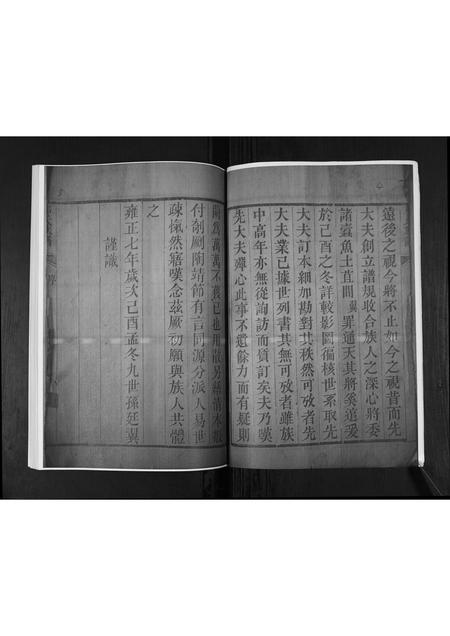 遠後之視今將不止如今之視昔而先
大夫創立譜規收合族人之深心將委
諸蠹魚土苴間翼罪通天其將奚逭爰
於己酉之冬詳較影圖循核世系取先
大夫訂本細加勘對其秩然可攷者先
大夫業已據世列書其無可攷者雖族
中高年亦無從詢訪而質訂矣夫乃嘆
先大夫殫心此事不遺餘力而有疑則
闕為萬萬不
付剞劂陶靖節有言同源分派人易世
疎愾然寤嘆念茲厥初願與族人共體
之
雍正七年歲次己酉孟冬九世孫廷翼
謹識